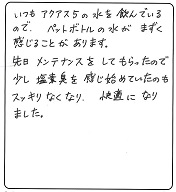 いつもアクアス5の水を飲んでいる
ので、ペットボトルの水がまずく
感じることがあります。
先日メンテナンスをしてもらったので
少し塩素臭を感じ始めていたのも
スッキリなくなり、快適になり
ました。